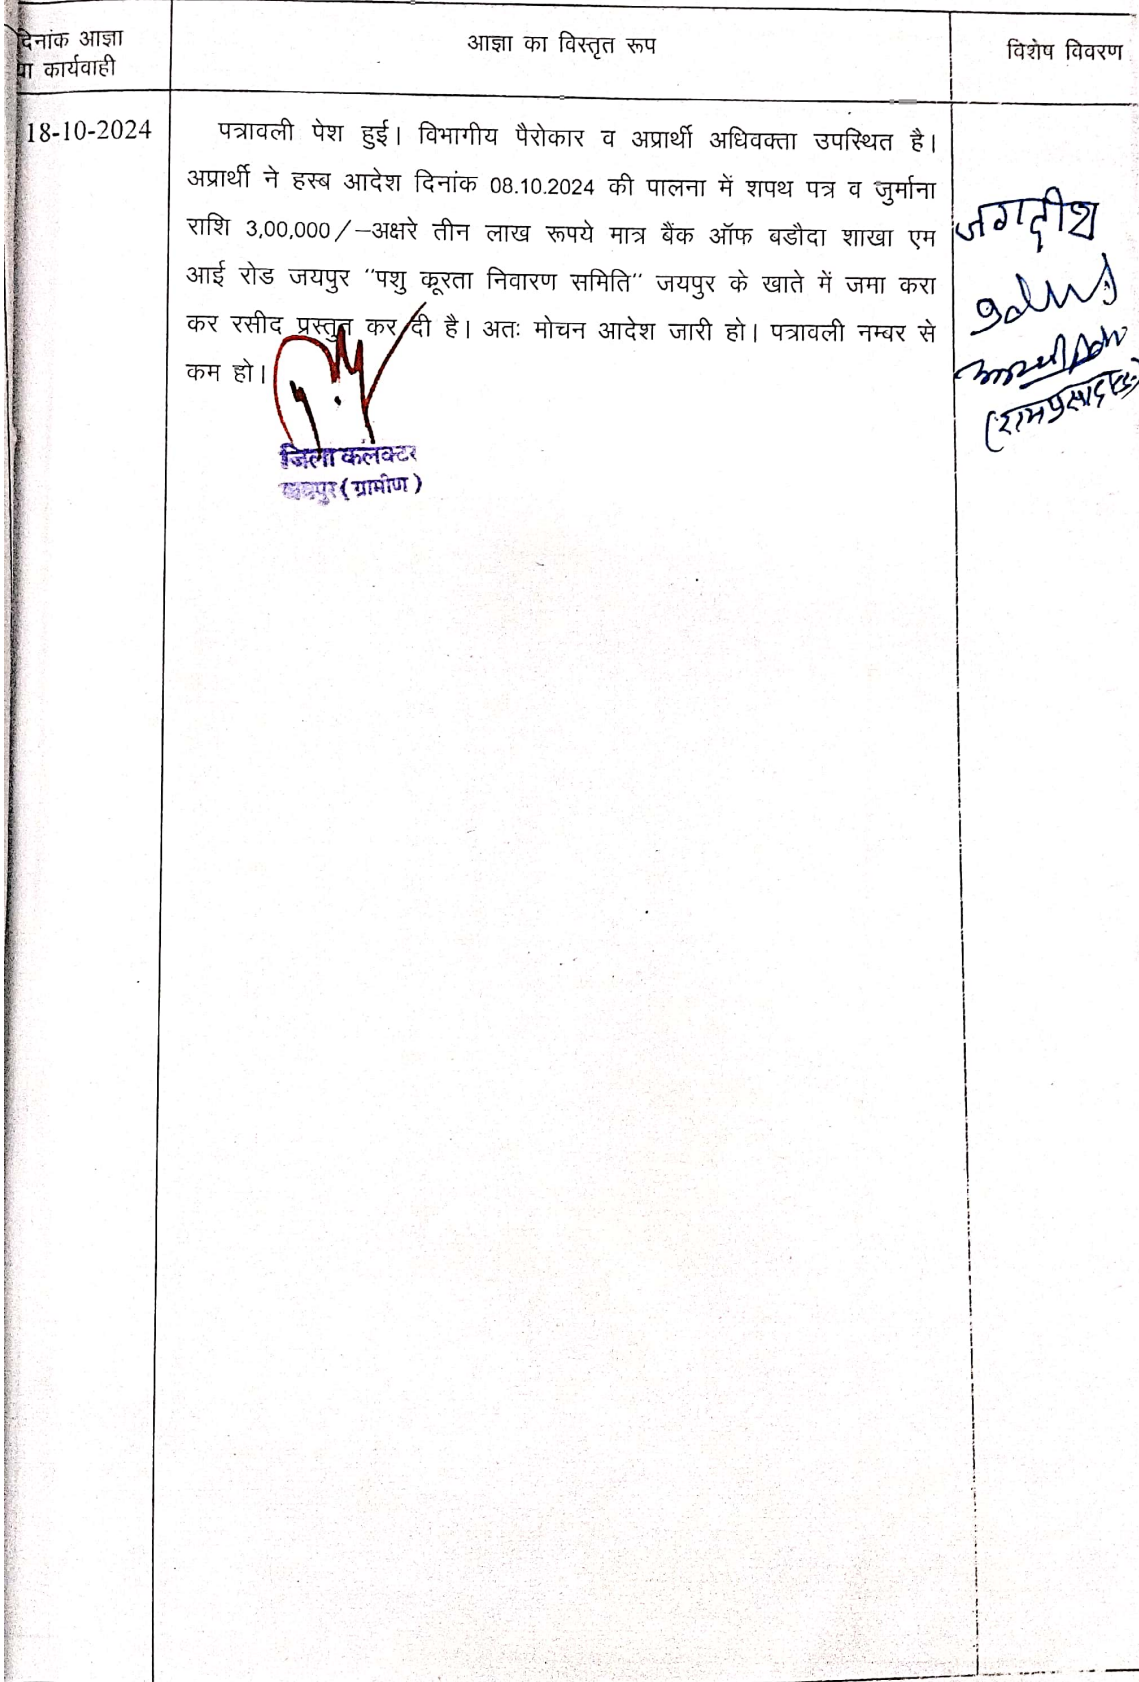 दिनांक आज्ञा
या कार्यवाही
आज्ञा का विस्तृत रूप
विशेष विवरण
18-10-2024
पत्रावली पेश हुई। विभागीय पैरोकार व अप्रार्थी अधिवक्ता उपस्थित है।
अप्रार्थी ने हस्ब आदेश दिनांक 08.10.2024 की पालना में शपथ पत्र व जुर्माना
राशि 3,00,000/–अक्षरे तीन लाख रूपये मात्र बैंक ऑफ बडौदा शाखा एम
आई रोड जयपुर "पशु क्रूरता निवारण समिति" जयपुर के खाते में जमा करा
कर रसीद प्रस्तुत कर दी है। अतः मोचन आदेश जारी हो। पत्रावली नम्बर से
कम हो।
जिला कलक्टर
जयपुर (ग्रामीण)
जगदीश